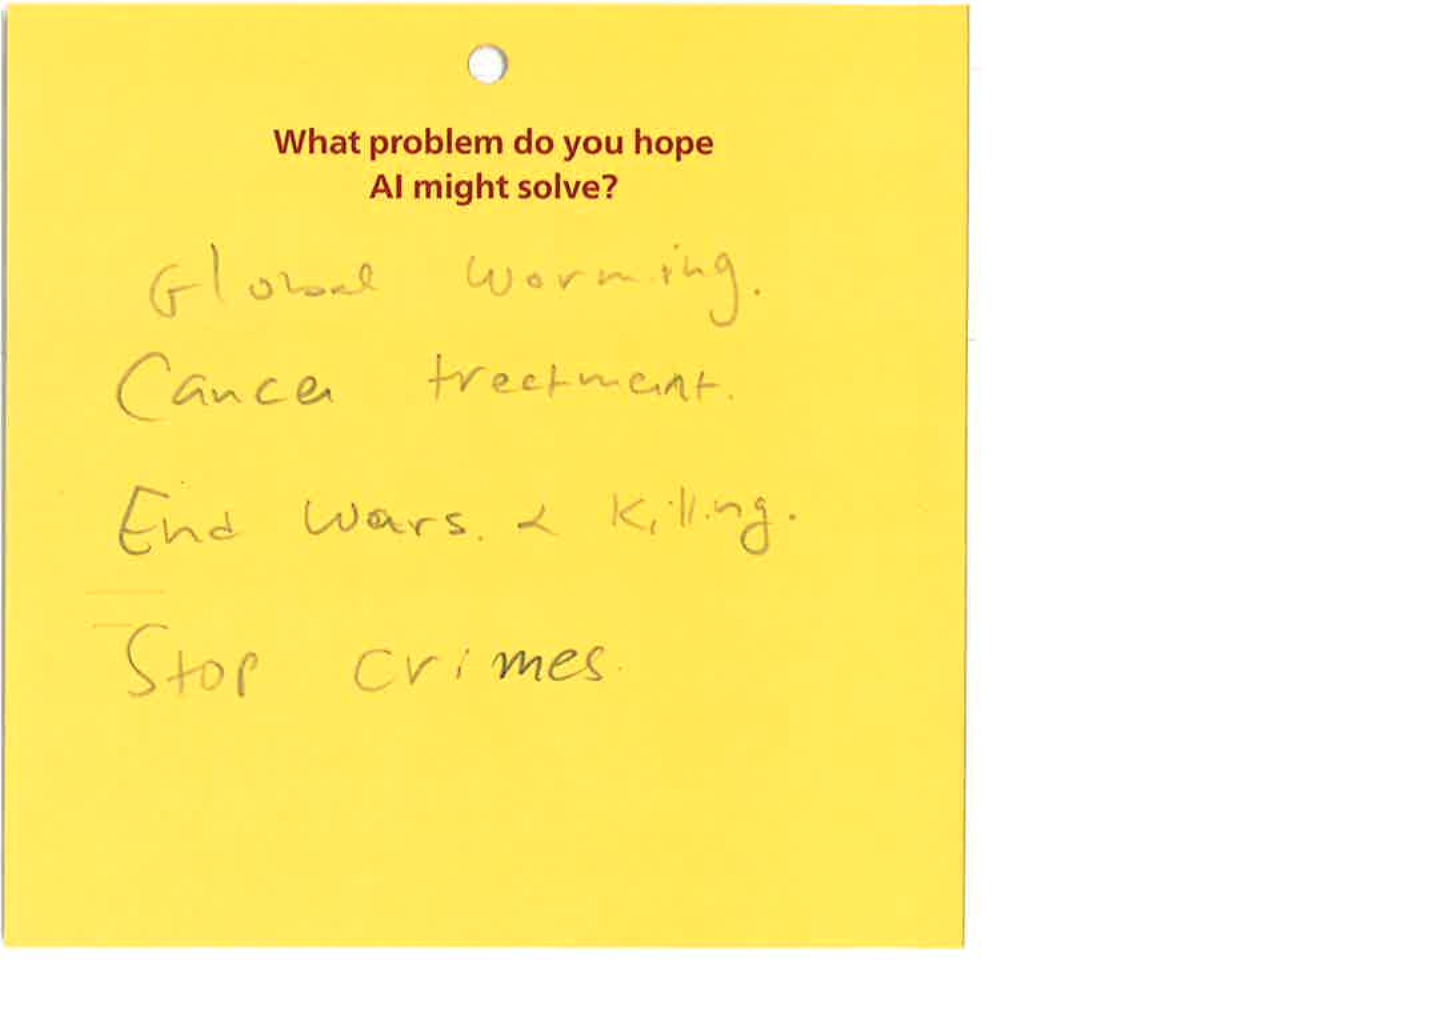 What problem do you hope
AI might solve?
Global worming.
Cancer treetment.
End wars. & Killing.
Stop crimes.